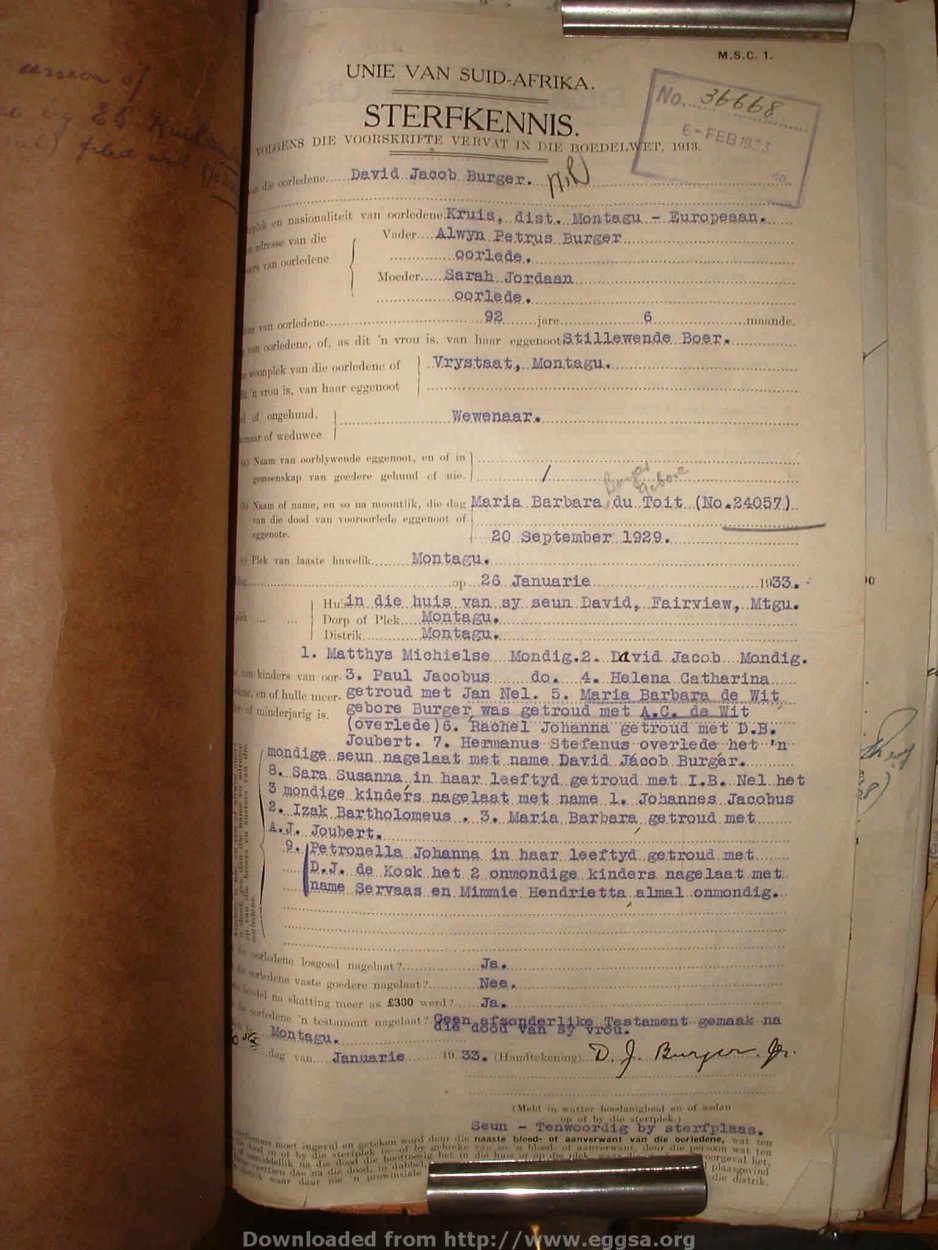 M.S.C. 1.
UNIE VAN SUID-AFRIKA.
No. 36668
6-FEB 1933
STERFKENNIS.
VOLGENS DIE VOORSKRIFTE VERVAT IN DIE BOEDELWET, 1913.
die oorledene David Jacob Burger.
en nasionaliteit van oorledene Kruis, dist. Montagu - Europeaan.
adresse van die Vader Alwyn Petrus Burger
van oorledene oorlede.
Moeder Sarah Jordaan
oorlede.
van oorledene 92 jare 6 maande.
van oorledene, of, as dit 'n vrou is, van haar eggenoot Stillewende Boer.
woonplek van die oorledene of Vrystaat, Montagu.
'n vrou is, van haar eggenoot
of ongehuud, Wewenaar.
of weduwee
(a) Naam van oorblywende eggenoot, en of in
gemeenskap van goedere gehuud of nie. /
Burger gebore
(b) Naam of name, en so na moontlik, die dag Maria Barbara du Toit (No.24057)
van die dood van vooroorlede eggenoot of
eggenote. 20 September 1929.
(c) Plek van laaste huwelik Montagu.
op 26 Januarie 1933.
Huis in die huis van sy seun David, Fairview, Mtgu.
Dorp of Plek Montagu.
Distrik Montagu.
1. Matthys Michielse Mondig. 2. David Jacob Mondig.
van kinders van oor- 3. Paul Jacobus do. 4. Helena Catharina
en of hulle meer- getroud met Jan Nel. 5. Maria Barbara de Wit
of minderjarig is. gebore Burger was getroud met A.C. de Wit
(overlede) 6. Rachel Johanna getroud met D.B.
Joubert. 7. Hermanus Stefanus overlede het 'n
mondige seun nagelaat met name David Jacob Burger.
8. Sara Susanna in haar leeftyd getroud met I.B. Nel het
3 mondige kinders nagelaat met name 1. Johannes Jacobus
2. Izak Bartholomeus . 3. Maria Barbara getroud met
A.J. Joubert.
9. Petronella Johanna in haar leeftyd getroud met
D.J. de Kock het 2 onmondige kinders nagelaat met
name Servaas en Mimmie Hendrietta almal onmondig.
oorledene losgoed nagelaat? Ja.
oorledene vaste goedere nagelaat? Nee.
na skatting meer as £300 werd? Ja.
oorledene 'n testament nagelaat? Geen afsonderlike Testament gemaak na
die dood van sy vrou.
Montagu.
dag van Januarie 1933. (Handtekening) D. J. Burger Jr.
(Meld in watter hoedanigheid en of asdan
op of by die sterfplek.)
Seun - Tenwoordig by sterfplaas.
moet ingevul en geteken word deur die naaste bloed- of aanverwant van die oorledene, wat ten
Downloaded from http://www.eggsa.org